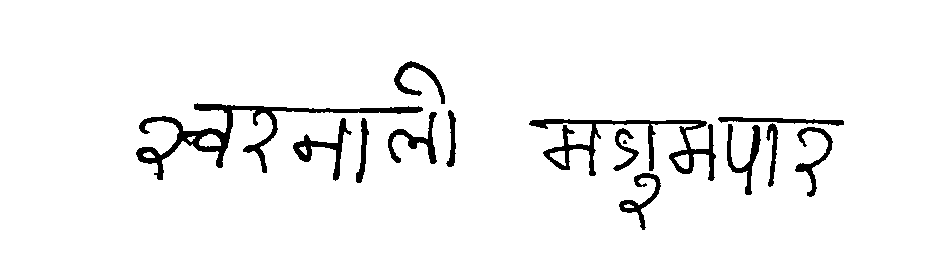 स्वरनाली मजुमपार